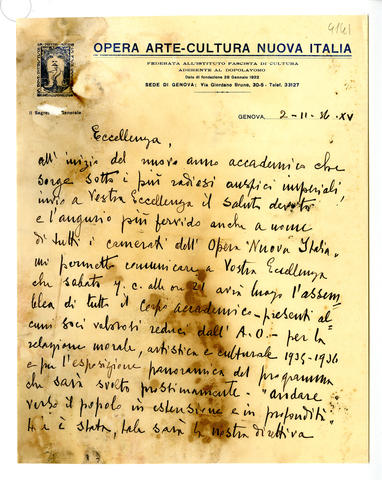 9141
OPERA ARTE-CULTURA NUOVA ITALIA
FEDERATA ALL'ISTITUTO FASCISTA DI CULTURA
ADERENTE AL DOPOLAVORO
Data di fondazione 28 Gennaio 1922
SEDE DI GENOVA: Via Giordano Bruno, 30-5 - Telef. 33127
Il Segretario Generale
GENOVA, 2-11-36-XV
Eccellenza,
all'inizio del nuovo anno accademico che
sorge sotto i più radiosi auspici imperiali,
invio a Vostra Eccellenza il saluto devoto
e l'augurio più fervido anche a nome
di tutti i camerati dell'Opera "Nuova Italia"
mi permetto comunicare a Vostra Eccellenza
che sabato 7 c. alle ore 21 avrà luogo l'assem
blea di tutto il corpo accademico - presenti al
cuni soci valorosi reduci dall'A.O. - per la
relazione morale, artistica e culturale 1935-1936
e per l'esposizione panoramica del programma
che sarà svolto prossimamente. "andare
verso il popolo in estensione e in profondità"
tale è stata, tale sarà la nostra direttiva